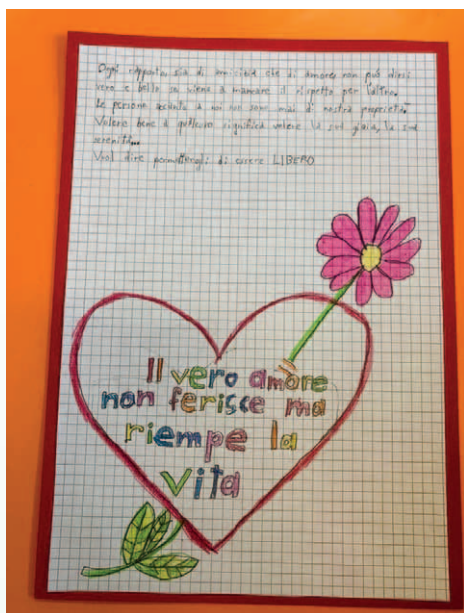 Ogni rapporto, sia di amicizia che di amore, non può dirsi
vero e bello se viene a mancare il rispetto per l'altro.
Le persone accanto a noi non sono mai di nostra proprietà.
Volere bene a qualcuno significa volere la sua gioia, la sua
serenità...
Vuol dire permettergli di essere LIBERO
Il vero amore
non ferisce ma
riempe la
vita